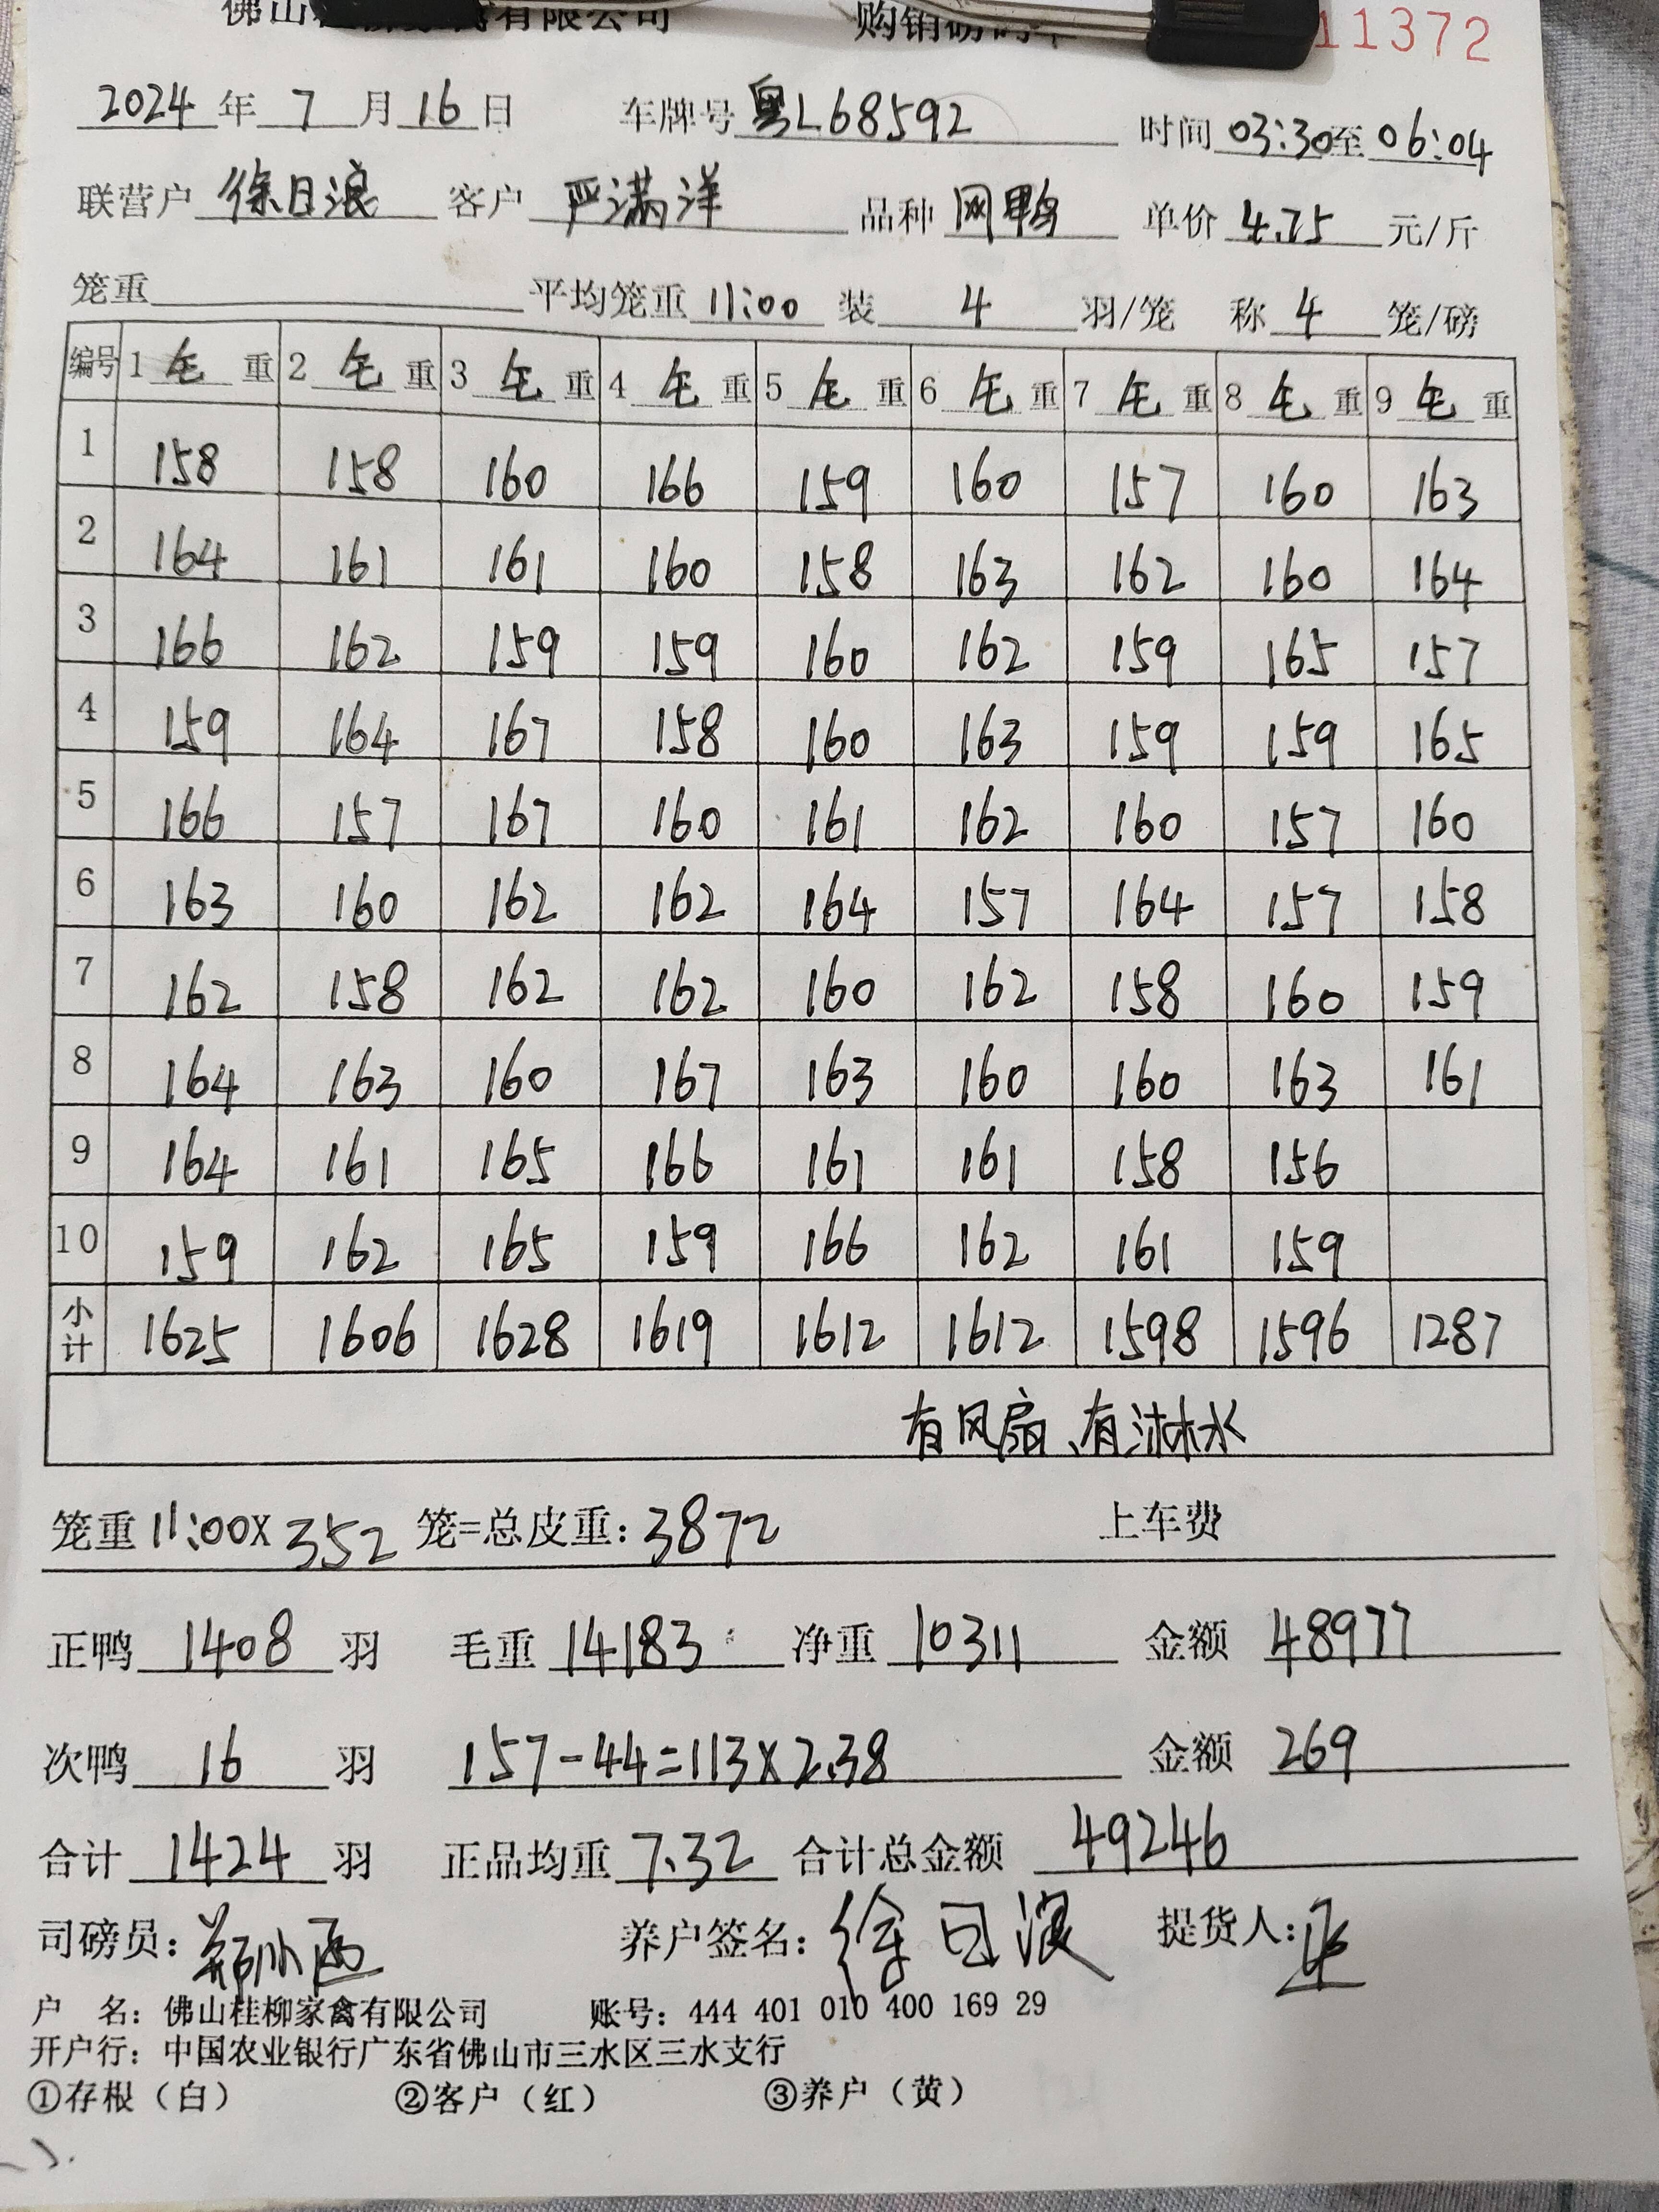 佛山桂柳家禽有限公司 购销磅码单 11372
2024年7月16日 车牌号粤L68592 时间03:30至06:04
联营户 徐日浪 客户 严满洋 品种 网鸭 单价 4.75 元/斤
笼重 平均笼重 11:00 装 4 羽/笼 称 4 笼/磅
编号 1毛重 2毛重 3毛重 4毛重 5毛重 6毛重 7毛重 8毛重 9毛重
1 158 158 160 166 159 160 157 160 163
2 164 161 161 160 158 163 162 160 164
3 166 162 159 159 160 162 159 165 157
4 159 164 167 158 160 163 159 159 165
5 166 157 167 160 161 162 160 157 160
6 163 160 162 162 164 157 164 157 158
7 162 158 162 162 160 162 158 160 159
8 164 163 160 167 163 160 160 163 161
9 164 161 165 166 161 161 158 156
10 159 162 165 159 166 162 161 159
小计 1625 1606 1628 1619 1612 1612 1598 1596 1287
有风扇、有淋水
笼重 11:00X 352 笼=总皮重: 3872 上车费
正鸭 1408 羽 毛重 14183 净重 10311 金额 48977
次鸭 16 羽 157-44=113X2.38 金额 269
合计 1424 羽 正品均重 7.32 合计总金额 49246
司磅员: 养户签名: 徐日浪 提货人:
户 名: 佛山桂柳家禽有限公司 账号: 444 401 010 400 169 29
开户行: 中国农业银行广东省佛山市三水区三水支行
①存根（白） ②客户（红） ③养户（黄）